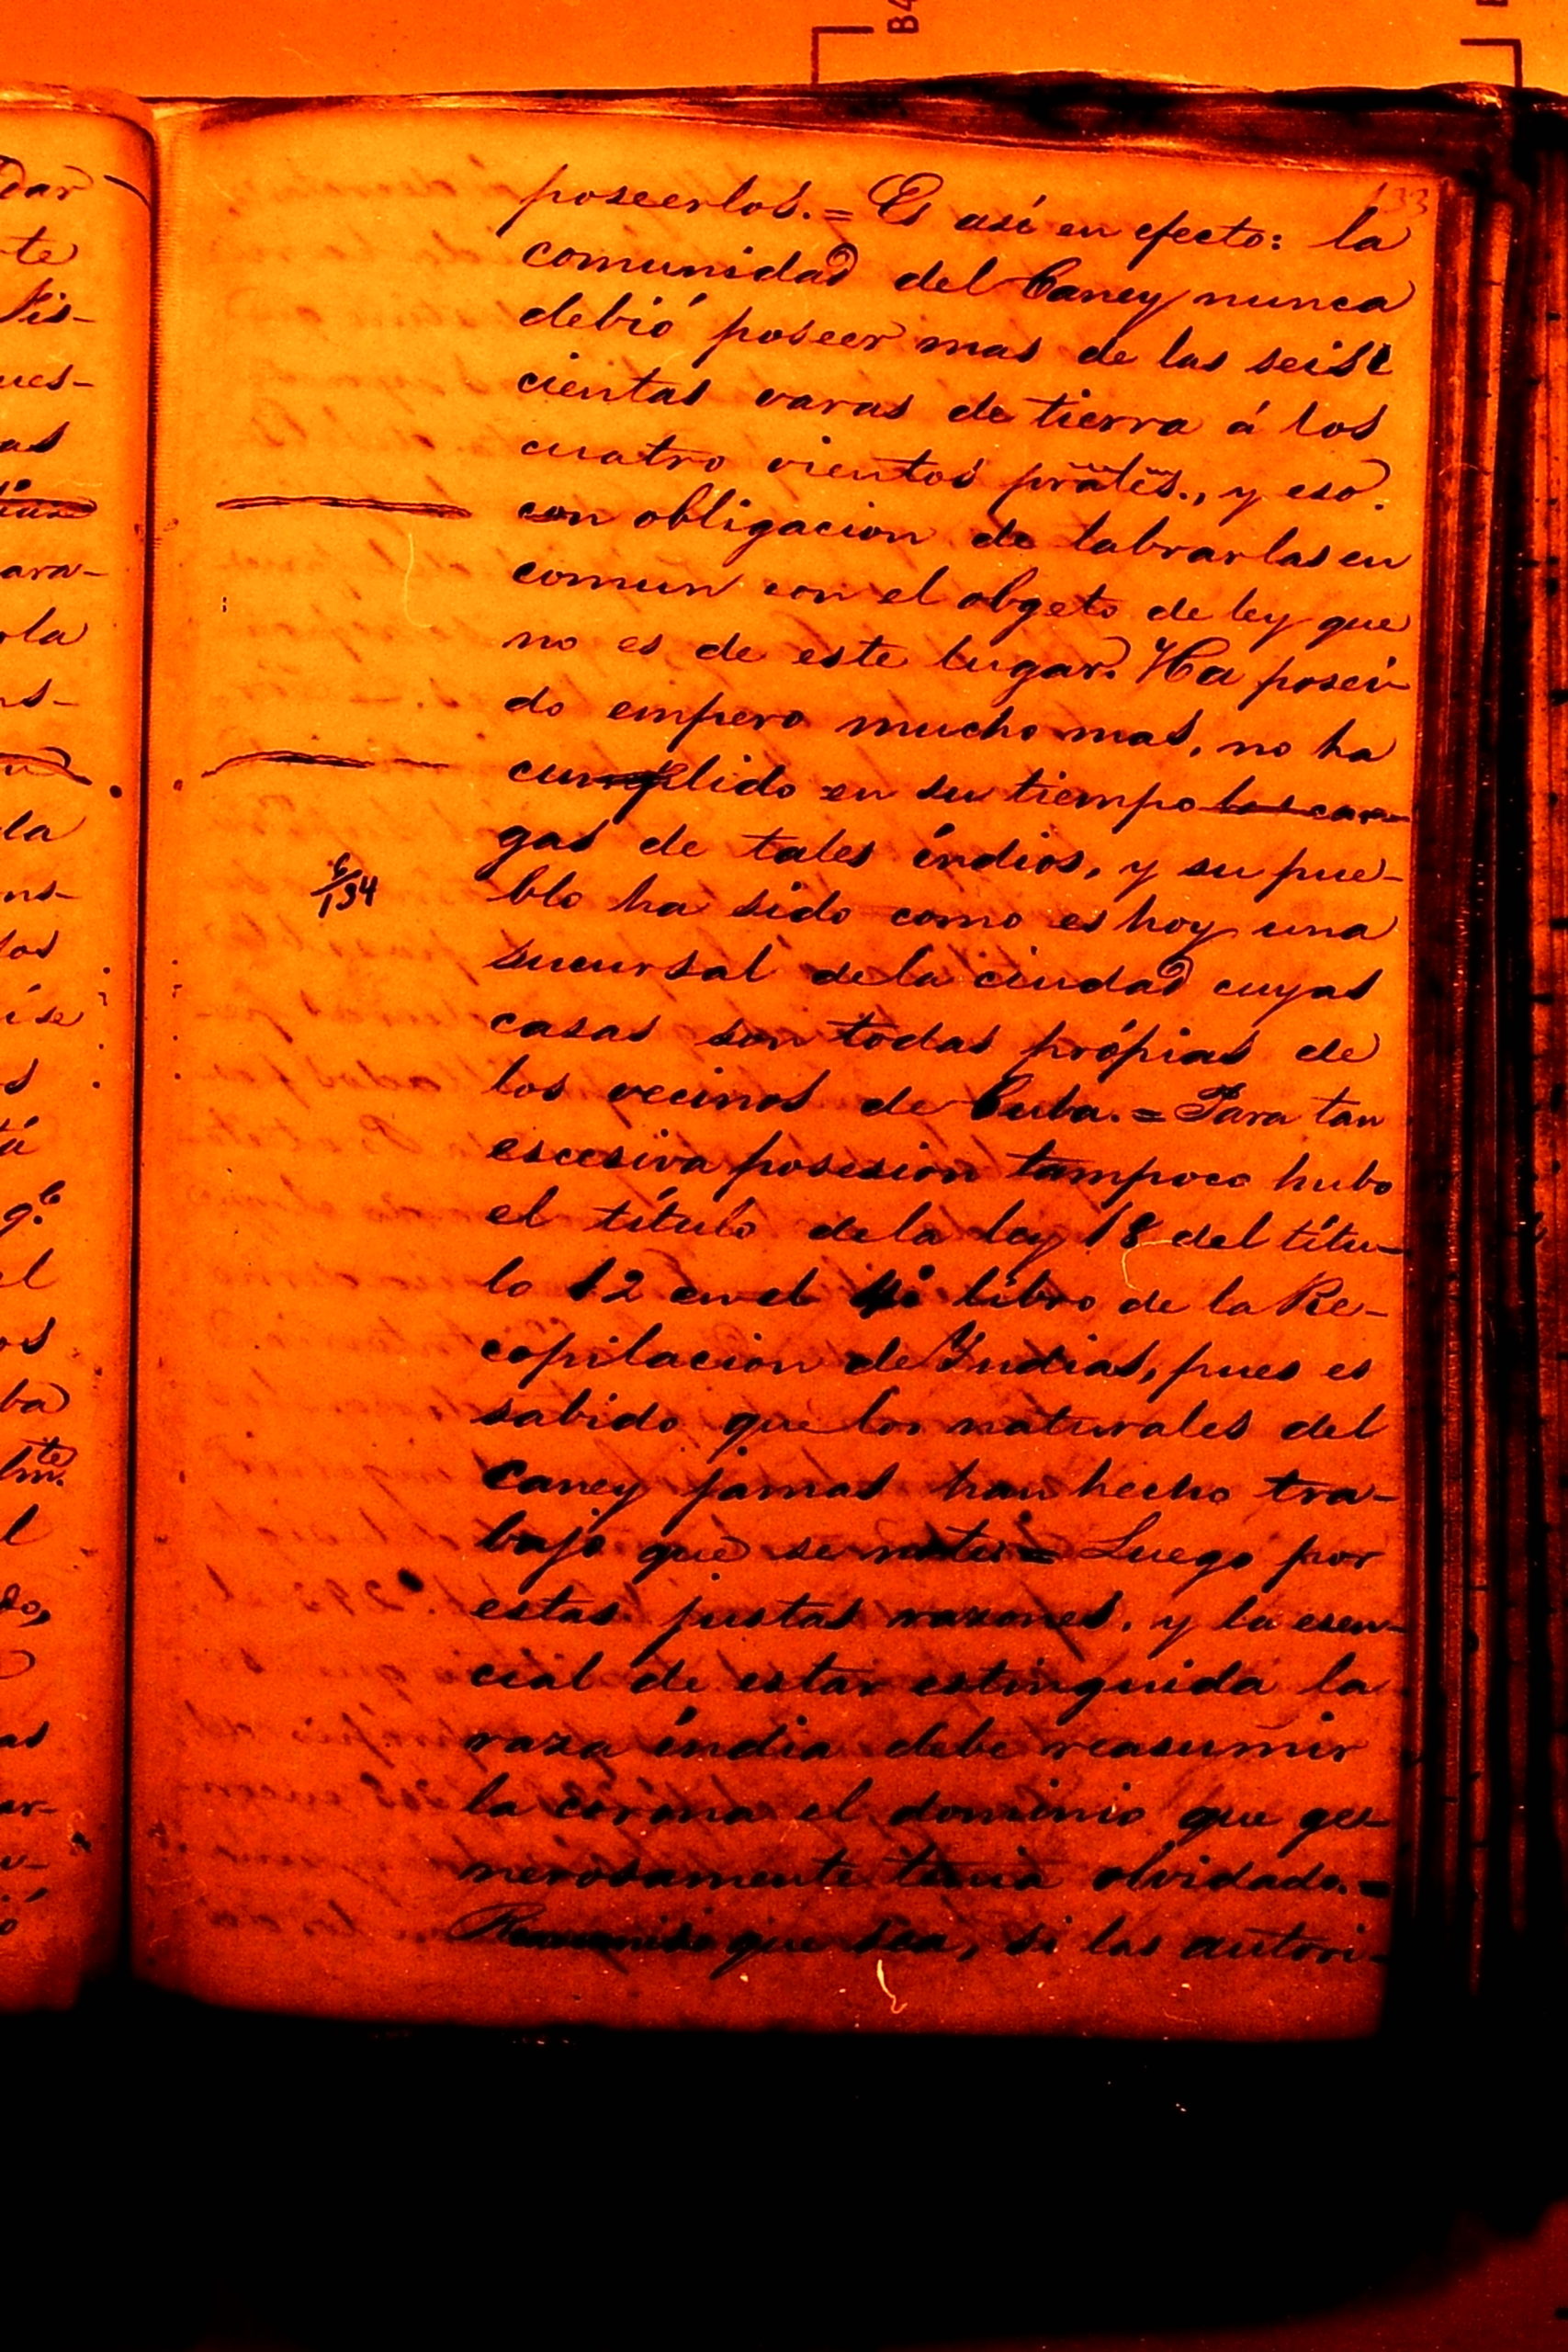 B4
133
poseerlos.= Es así en efecto: la
comunidad del Caney nunca
debió poseer mas de las seis
cientas varas de tierra á los
cuatro vientos prales., y eso
con obligacion de labrarlas en
comun con el obgeto de ley que
no es de este lugar. Ha posei-
do empero mucho mas, no ha
cumplido en su tiempo las car-
gas de tales índios, y su pue-
6/134
blo ha sido como es hoy una
sucursal de la ciudad cuyas
casas son todas própias de
los vecinos de Cuba.= Para tan
escesiva posesion tampoco hubo
el título de la ley 18 del títu-
lo 12 en el 4º libro de la Re-
copilacion de Yndias, pues es
sabido que los naturales del
Caney jamas han hecho tra-
bajo que se note.= Luego por
estas justas razones, y la esen-
cial de estar estinguida la
raza índia debe reasumir
la corona el dominio que ge-
nerosamente tenia olvidado.=
que sea, si las autori-
dar
te
Fis-
ues-
as
ara-
la
ns-
la
ns-
los
ise